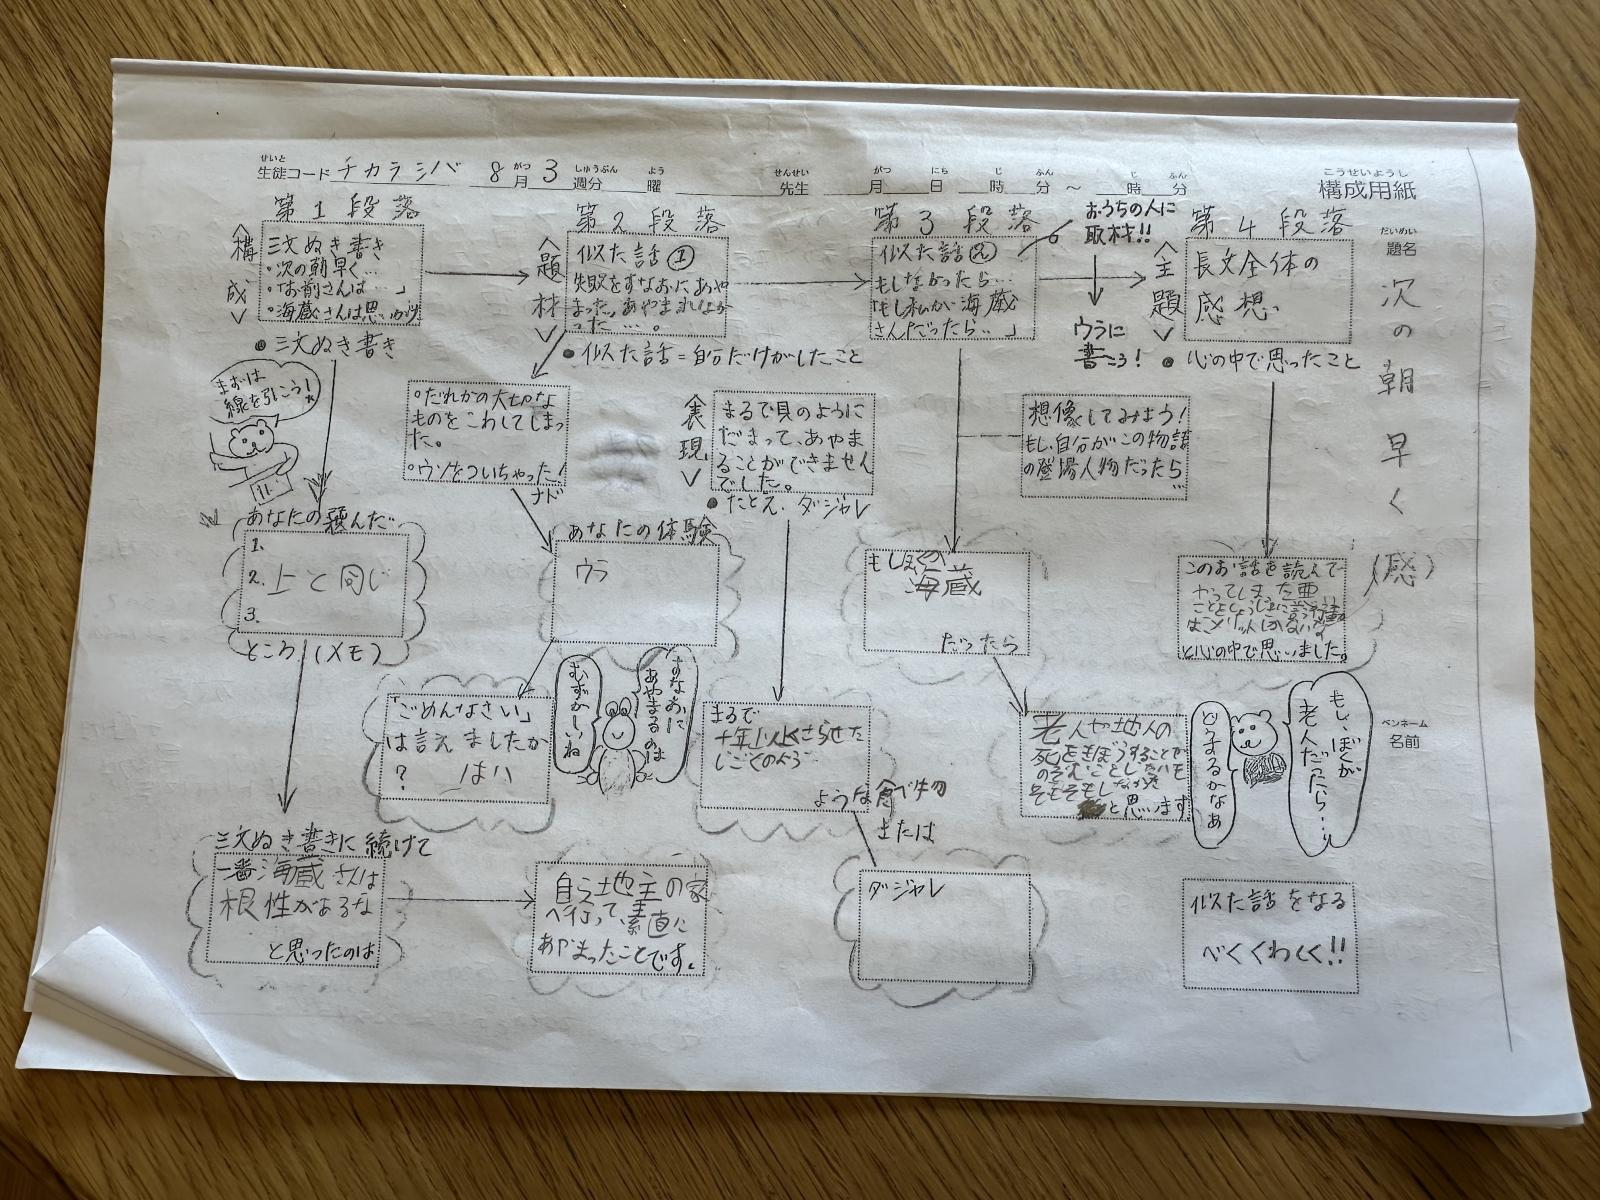 生徒コード チカラシバ 8月3週分 曜 先生 月 日 時 分 ～ 時 分 構成用紙
せいと がつ しゅうぶん よう せんせい がつ にち じ ふん じ ふん こうせいようし
第1段落
〈構成〉
三文ぬき書き
・次の朝早く…
・「お前さんは…」
・海蔵さんは思いがけ
●三文ぬき書き
まずは
線を引こう!
あなたの選んだ
1.
2.上と同じ
3.
ところ(メモ)
三文ぬき書きに続けて
一番海蔵さんは
根性があるな
と思ったのは
第2段落
〈題材〉
似た話①
失敗をすなおにあや
まった。あやまればよか
った…。
●似た話=自分だけがしたこと
・だれかの大切な
ものをこわしてしまっ
た。
・ウソをついちゃった!
ナド
あなたの体験
ウラ
「ごめんなさい」
は言えましたか
? はい
すなおに
あやまるのは
むずかしいね
自ら地主の家
へ行って、素直に
あやまったことです。
〈表現〉
まるで貝のように
だまって、あやま
ることができません
でした。
●たとえ、ダジャレ
まるで
十年以上くさらせた
しごくのよう
ような食べ物
または
ダジャレ
第3段落
似た話②
もしなかったら…
「もし私が海蔵
さんだったら…」
おうちの人に
取材!!
ウラに
書こう!
想像してみよう!
もし、自分がこの物語
の登場人物だったら…
もしぼくが
海蔵
だったら
老人や地人の
死をきぼうすることや
のぞむことしないも
そもそもしなかった
と思います
第4段落
〈主題〉
長文全体の
感想。
●心の中で思ったこと
このお話を読んで
やってしまった悪
ことをしょうじきに言う行動
はメリットしかないな
と心の中で思いました。
もし、ぼくが
老人だったら…
どうするかなぁ
似た話をなる
べくくわしく!!
だいめい
題名
次の朝早く
(感)
ペンネーム
名前